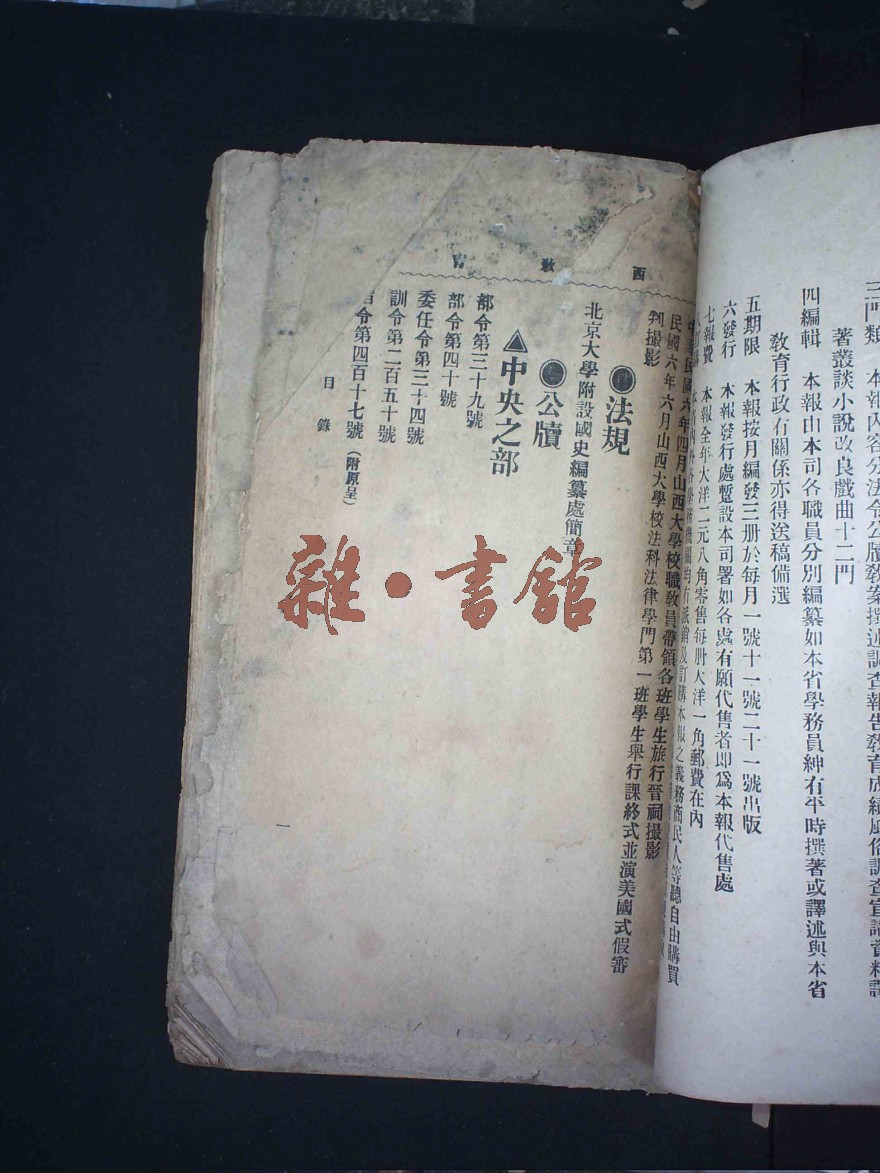 著叢談小說改良戲曲十二門
四編輯 本報由本司各職員分別編纂如本省學務員紳有平時撰著或譯述與本省
教育行政有關係亦得送稿備選
五期限 本報按月編發三册於每月一號十一號二十一號出版
六發行 本報發行處暫設本司署如各處有願代售者即爲本報代售處
七報費 本報全年大洋二元八角零售每册大洋一角郵費在內
訂購本報之義務商民人等聽自由購買
西 敎 育
民國六年四月山西大學校職敎員帶領各班學生旅行晉祠撮影
民國六年六月山西大學校法科法律學門第一班學生舉行課終式並演美國式假審
判撮影
法規
北京大學附設國史編纂處簡章
公牘
▲中央之部
部令第三十九號
部令第四十號
委任令第三十四號
訓令第二百五十號
令第四百十七號(附原呈)
目錄
一
雜·書館